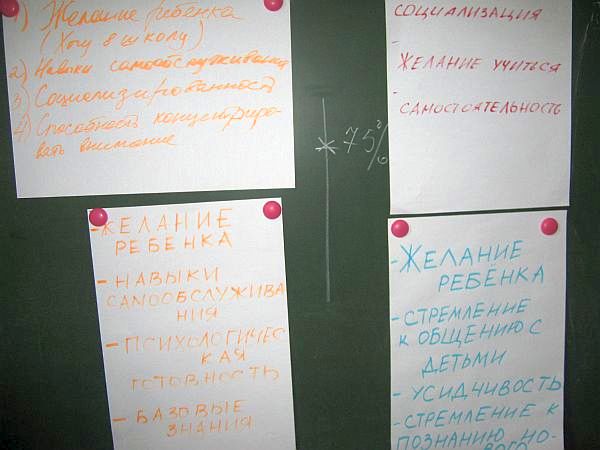 1) Желание ребёнка
(Хочу в школу)
2) Навыки самообслуживания
3) Социализированность
4) Способность концентриро-
вать внимание
75%
СОЦИАЛИЗАЦИЯ
-
ЖЕЛАНИЕ УЧИТЬСЯ
-
САМОСТОЯТЕЛЬНОСТЬ
- ЖЕЛАНИЕ
РЕБЕНКА
- НАВЫКИ
САМООБСЛУЖИВА
НИЯ
- ПСИХОЛОГИЧЕС
КАЯ
ГОТОВНОСТЬ
- БАЗОВЫЕ
ЗНАНИЯ
- ЖЕЛАНИЕ
РЕБЁНКА
- СТРЕМЛЕНИЕ
К ОБЩЕНИЮ С
ДЕТЬМИ
- УСИДЧИВОСТЬ
- СТРЕМЛЕНИЕ К
ПОЗНАНИЮ НО-
ВОГО